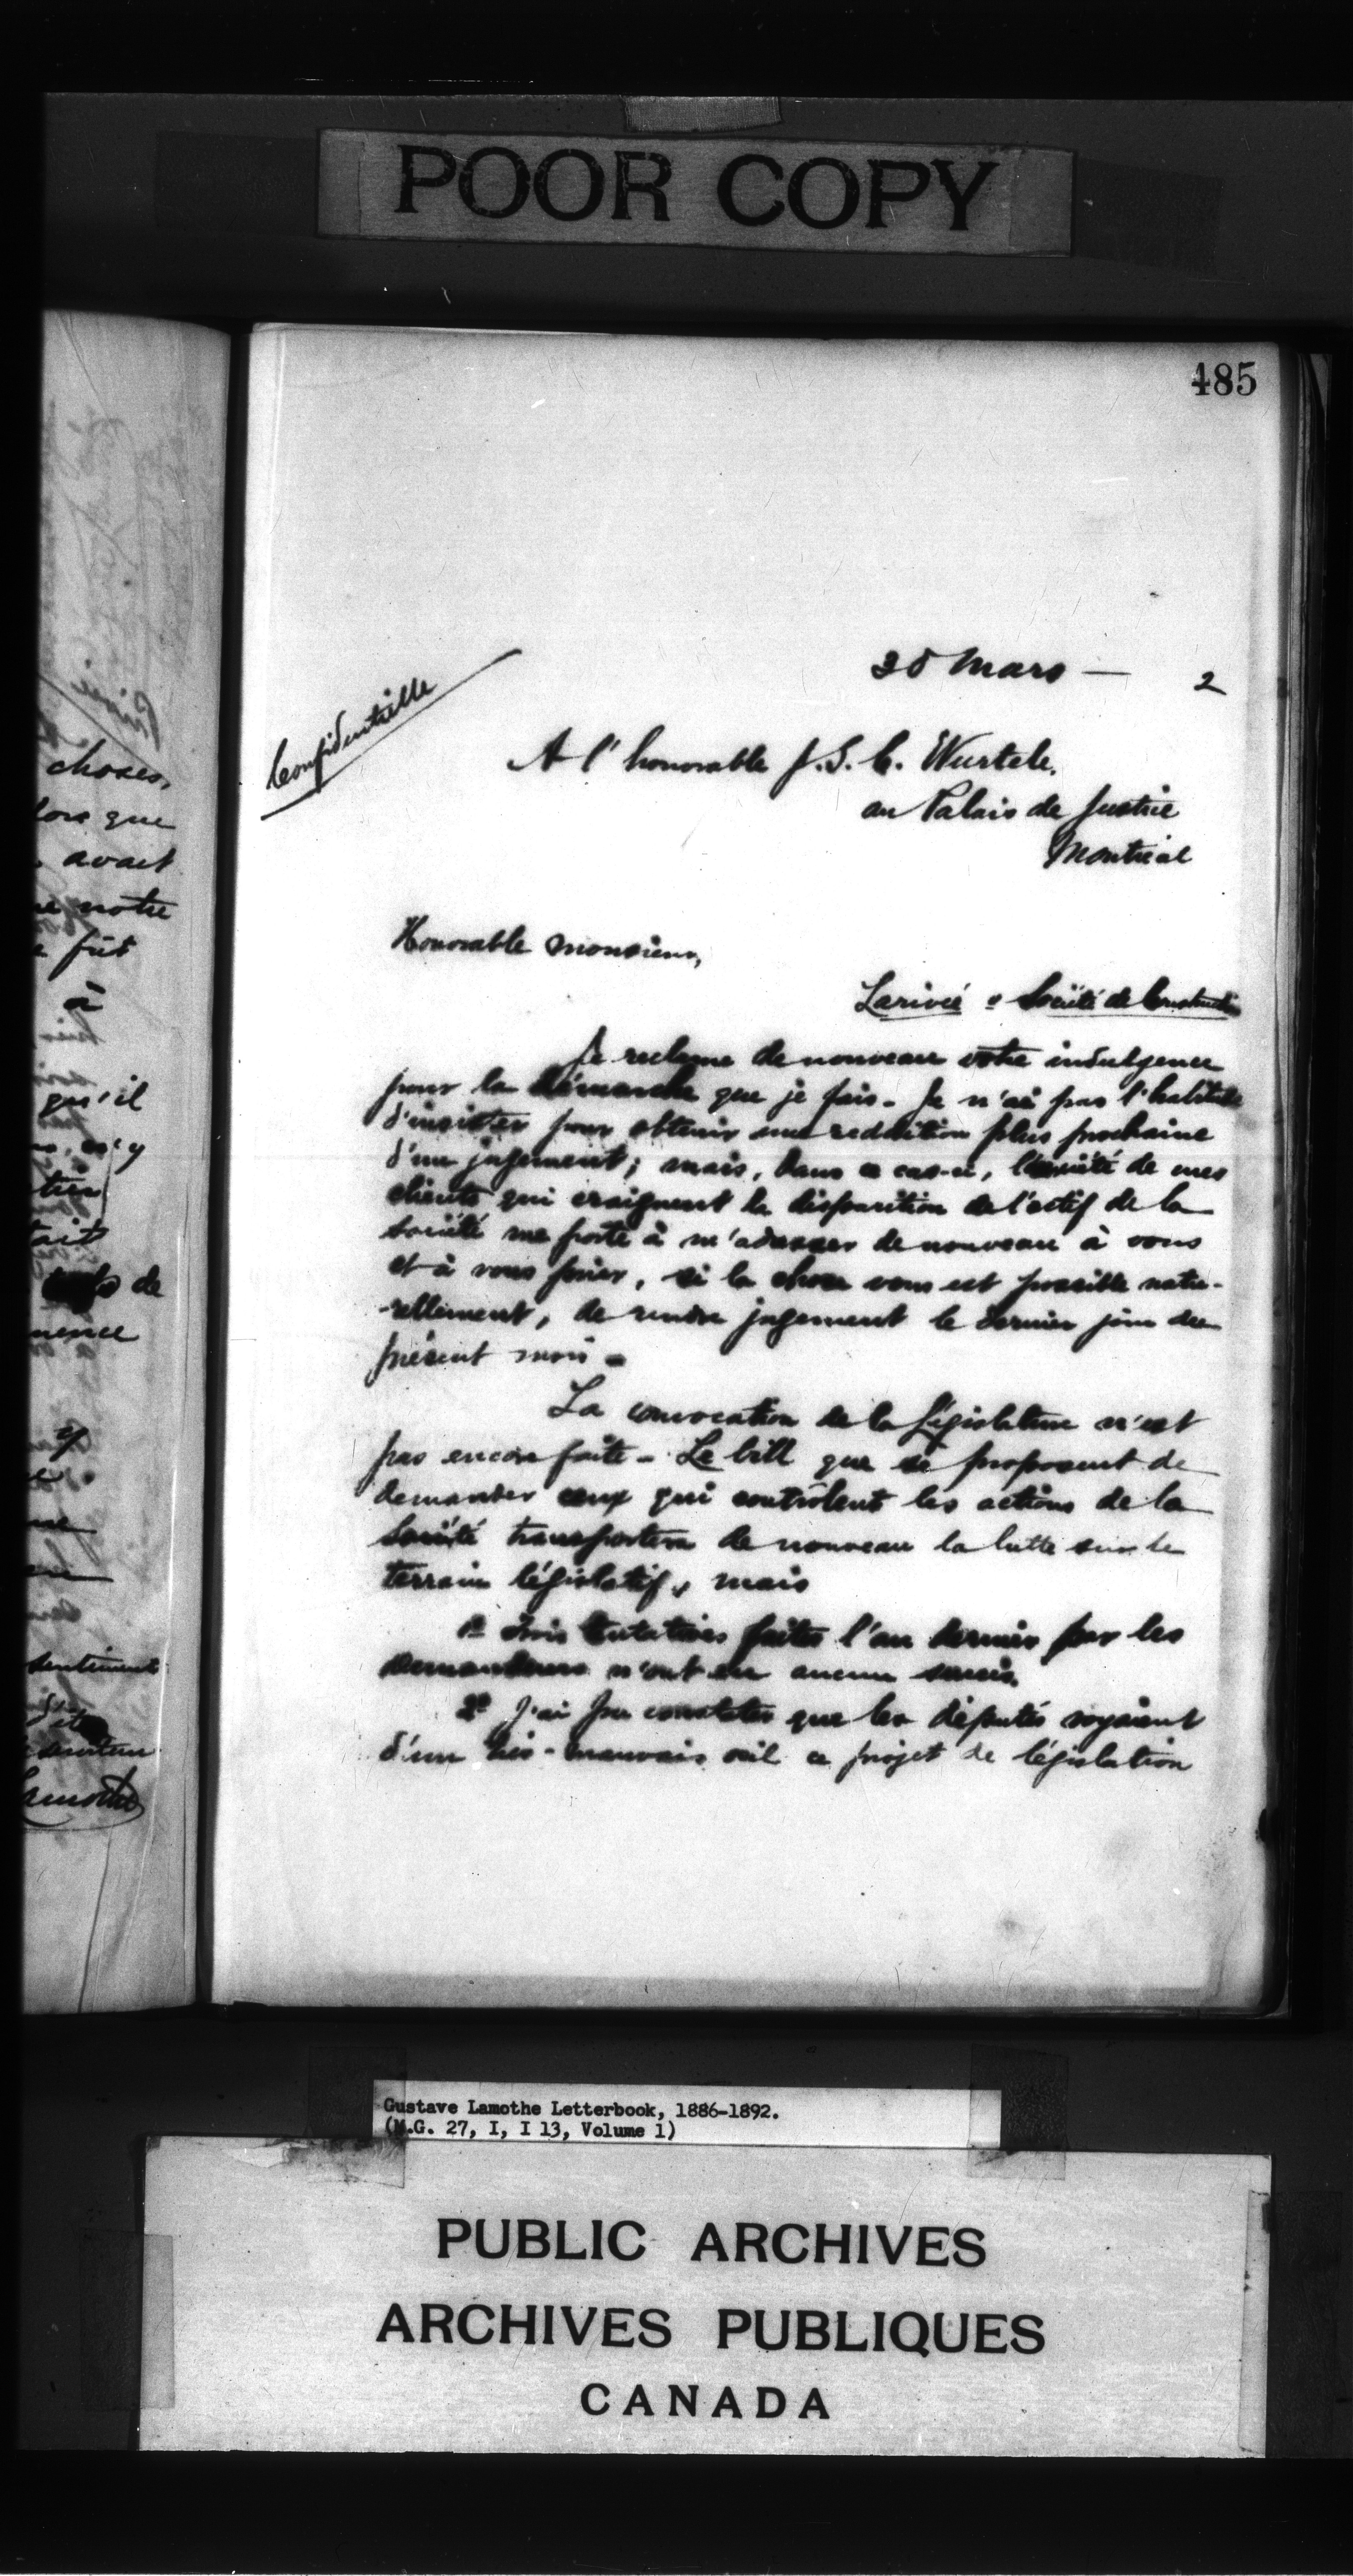 POOR COPY
485
30 Mars — 2
Confidentielle
A l'honorable J. S. C. Wurtele.
au Palais de Justice
Montréal
Honorable Monsieur,
Larivée Société de Construction
Je réclame de nouveau votre indulgence
pour la démarche que je fais - Je n'ai pas l'habitude
d'insister pour obtenir une reddition plus prochaine
d'un jugement; mais, dans ce cas-ci, l'anxiété de mes
clients qui craignent la disparition de l'actif de la
société me porte à m'adresser de nouveau à vous
et à vous prier, si la chose vous est possible natu-
-rellement, de rendre jugement le dernier jour du
présent mois -
La convocation de la Législature n'est
pas encore faite - Le bill que se proposent de
demander ceux qui contrôlent les actions de la
Société transportera de nouveau la lutte sur le
terrain législatif, mais
1º Trois tentatives faites l'an dernier par les
demandeurs n'ont eu aucun succès.
2º J'ai pu constater que les députés voyaient
d'un très-mauvais œil ce projet de législation
choses,
lors que
avait
notre
fût
à
qu'il
n'y
de
sentiments
Lamothe
Gustave Lamothe Letterbook, 1886-1892.
(M.G. 27, I, I 13, Volume 1)
PUBLIC ARCHIVES
ARCHIVES PUBLIQUES
CANADA